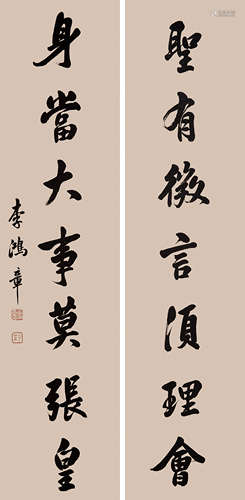 聖有微言須理會
身當大事莫張皇
李鴻章